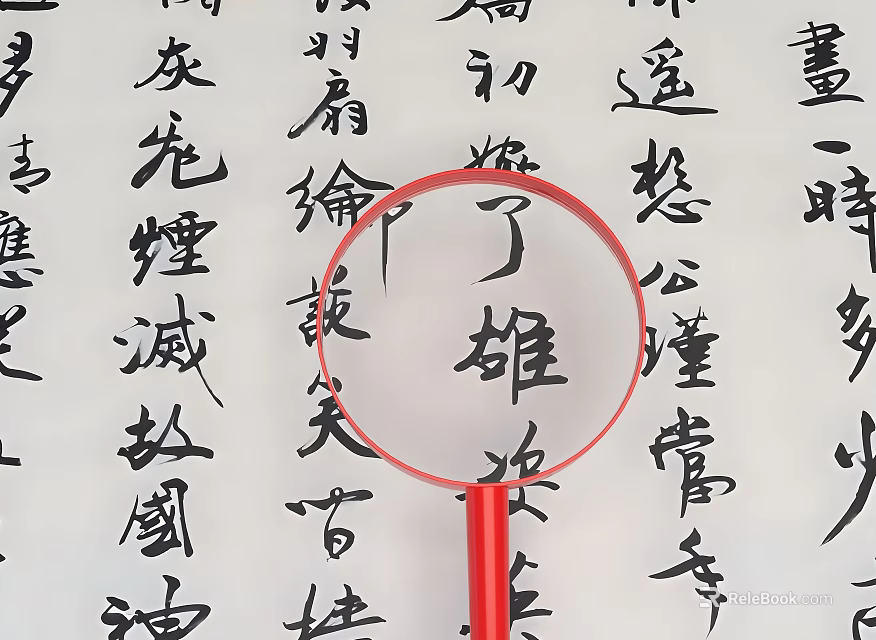 畫一時多少
遙想公瑾當年
喬初嫁了雄姿英
羽扇綸巾談笑間檣
灰飛煙滅故國神
多情應笑
ReleBook.com